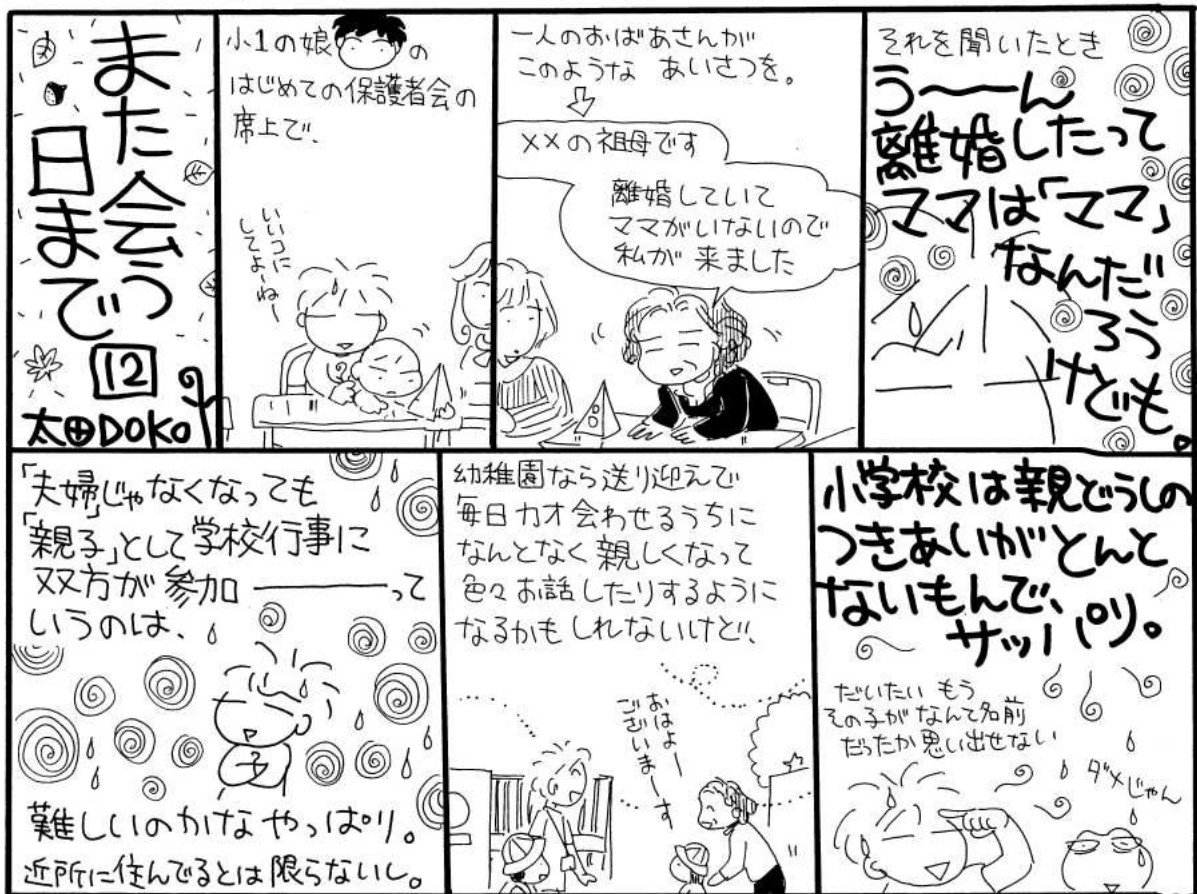 また会う
日まで
12
太田DOKO
小1の娘の
はじめての保護者会の
席上で、
いいコに
してよーねー
一人のおばあさんが
このような あいさつを。
××の祖母です
離婚していて
ママがいないので
私が来ました
それを聞いたとき
う〜ん
離婚したって
ママは「ママ」
なんだ
ろう
けども。
「夫婦」じゃなくなっても
「親子」として学校行事に
双方が参加―――って
いうのは、
子
難しいのかなやっぱり。
近所に住んでるとは限らないし。
幼稚園なら送り迎えで
毎日カオ会わせるうちに
なんとなく親しくなって
色々お話したりするように
なるかもしれないけど、
おはよー
ございまーす
小学校は親どうしの
つきあいがとんと
ないもんで、
サッパリ。
だいたい もう
その子がなんて名前
だったか思い出せない
ダメじゃん